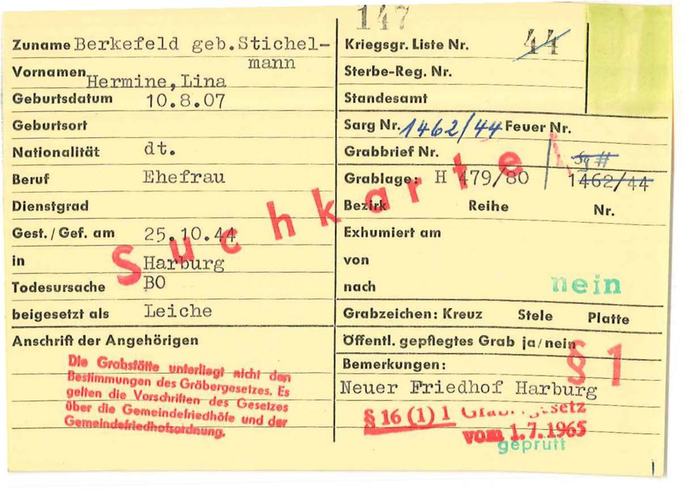 147
Zuname Berkefeld geb.Stichel-
mann
Vornamen Hermine,Lina
Geburtsdatum 10.8.07
Geburtsort
Nationalität dt.
Beruf Ehefrau
Dienstgrad
Gest./Gef. am 25.10.44
in Harburg
Todesursache BO
beigesetzt als Leiche
Anschrift der Angehörigen
Die Grabstätte unterliegt nicht den
Bestimmungen des Gräbergesetzes. Es
gelten die Vorschriften des Gesetzes
über die Gemeindefriedhöfe und der
Gemeindefriedhofsordnung.
Suchkarte
Kriegsgr. Liste Nr. 44
Sterbe-Reg. Nr.
Standesamt
Sarg Nr. 1462/44 Feuer Nr.
Grabbrief Nr. Sg #
Grablage: H 479/80 1462/44
Bezirk Reihe Nr.
Exhumiert am
von
nach nein
Grabzeichen: Kreuz Stele Platte
Öffentl. gepflegtes Grab ja/nein
§ 1
Bemerkungen:
Neuer Friedhof Harburg
§ 16 (1) 1 Gräbergesetz
vom 1.7.1965
geprüft